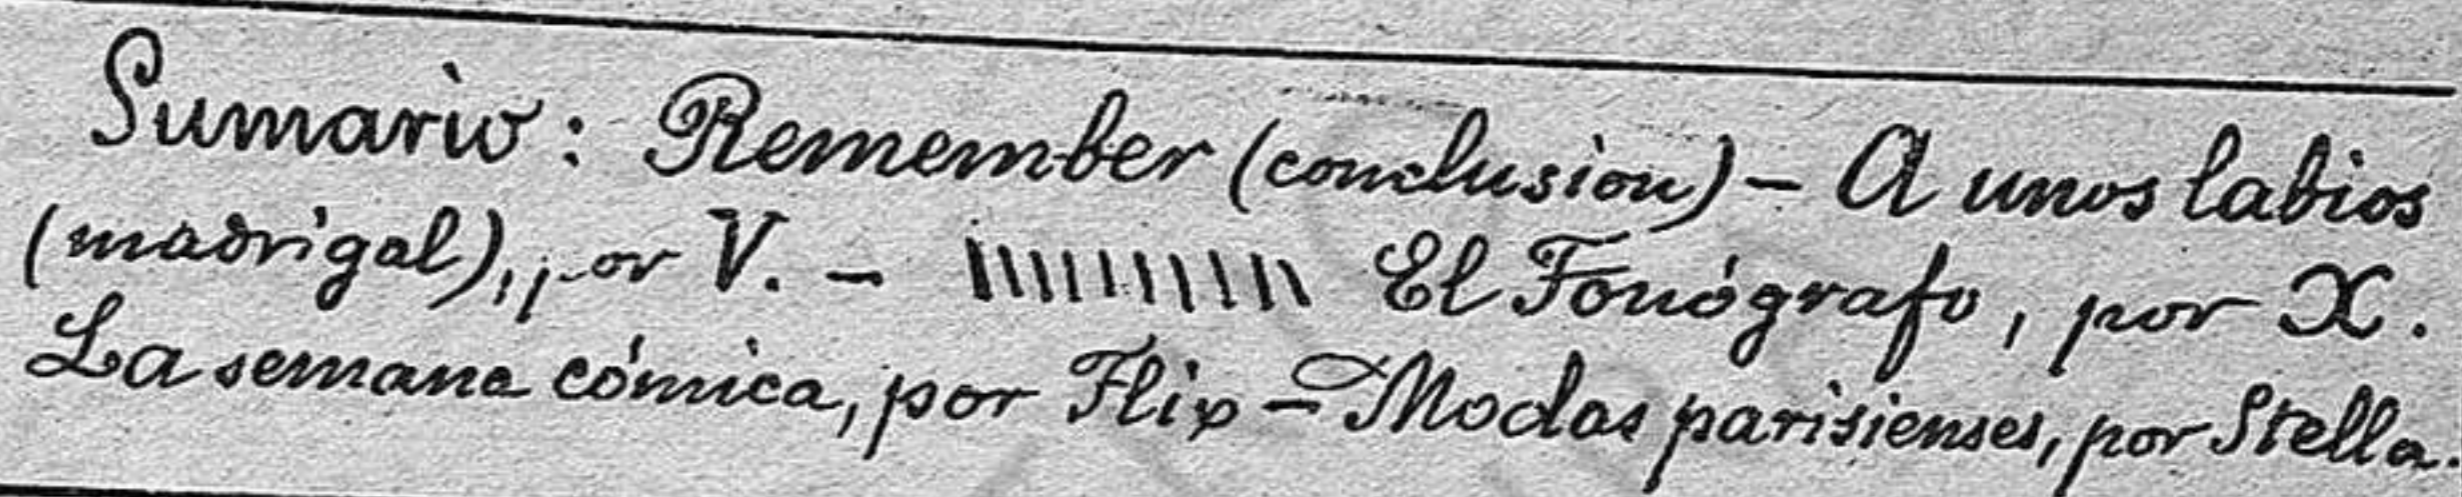 Sumario: Remember (conclusion) – A unos labios
(madrigal), por V. – \\\\\\\\\\ El Fonógrafo, por X.
La semana cómica, por Flip – Modas parisienses, por Stella.